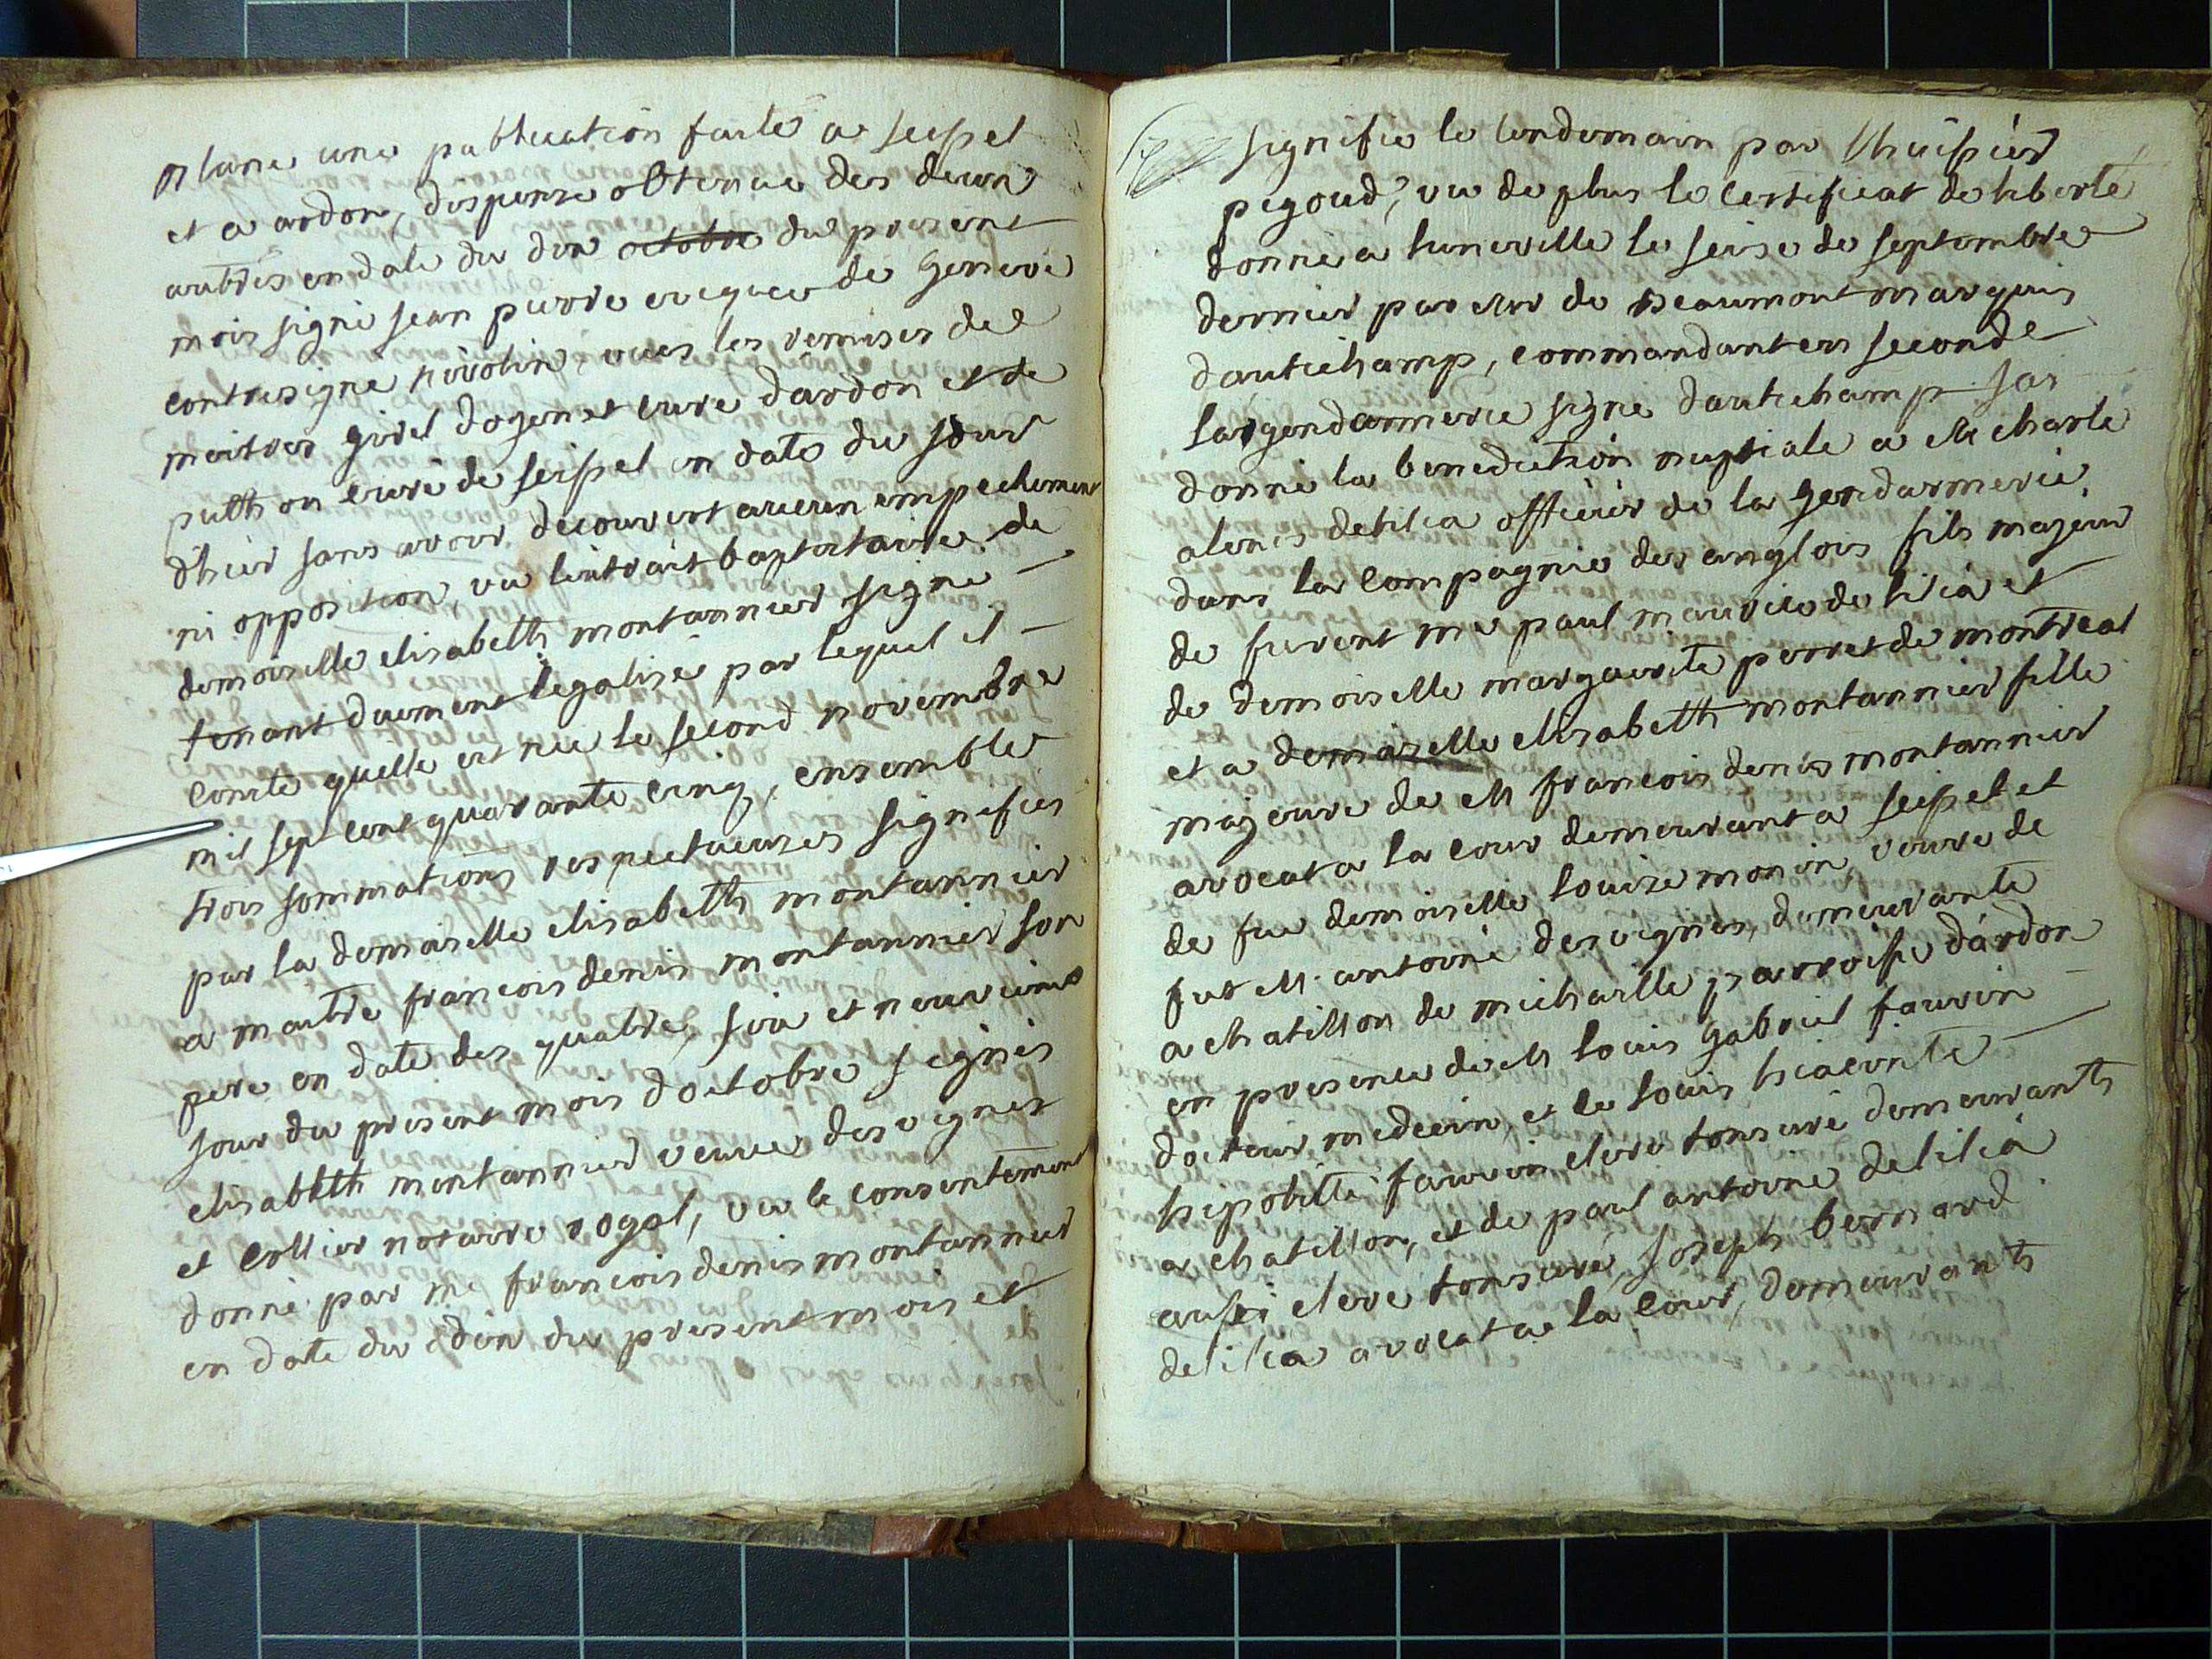 plane une publication faite a seissel
et a ardon, dispense obtenue des deux
autres en date du dix octobre du present
mois signé jean pierre eveque de geneve
contresigné nivolin, vues les remises de
maitres girel doyen et curé dardon et de
curé de seissel en date du jour
d'hier sans avoir decouvert aucun empechement
ni opposition, vu lextrait baptistaire de
demoiselle elisabeth montannier signé
tenant duement legalisé par lequel il
conste quelle est née le second novembre
mil sept cent quarante cinq, ensemble
trois sommations respectueuses signifiés
par la demoiselle elisabeth montannier
a maitre francois denis montannier son
pere en date des quatre, six et neuvieme
jour du present mois doctobre signés
elisabeth montannier veuve desvignes
et crollier notaire royal, vu le consentement
donné par me francois denis montannier
en date du dix du present mois et
signifié le lendemain par lhuissier
pegoud, vu de plus le certificat de liberté
donné a luneville le seise de septembre
dernier par mr de beaumont marquis
dautichamp, commandant en seconde
la gendarmerie signé dautichamp jai
donné la benediction nuptiale a m charle
alexis delilia officier de la gendarmerie
dans la compagnie des anglois fils majeur
de furent me paul maurice de lilia et
de demoiselle marguerite perret de montreal
et a demoiselle elisabeth montannier fille
majeure de m francois denis montannier
avocat a la cour demeurant a seissel et
de fue demoiselle louise monin, veuve de
fut m. antoine desvignes, demeurante
a chatillon de michaille parroisse dardon
en presence de m louis gabriel fauvin
docteur medecin, et de louis hiacinte
hipolitte fauvin clerc tonsuré demeurants
a chatillon, et de paul antoine delilia
aussi clerc tonsuré, joseph bernard
delilia avocat a la cour, demeurants